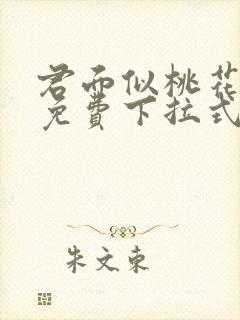 君面似桃花
免费下拉式
朱文东